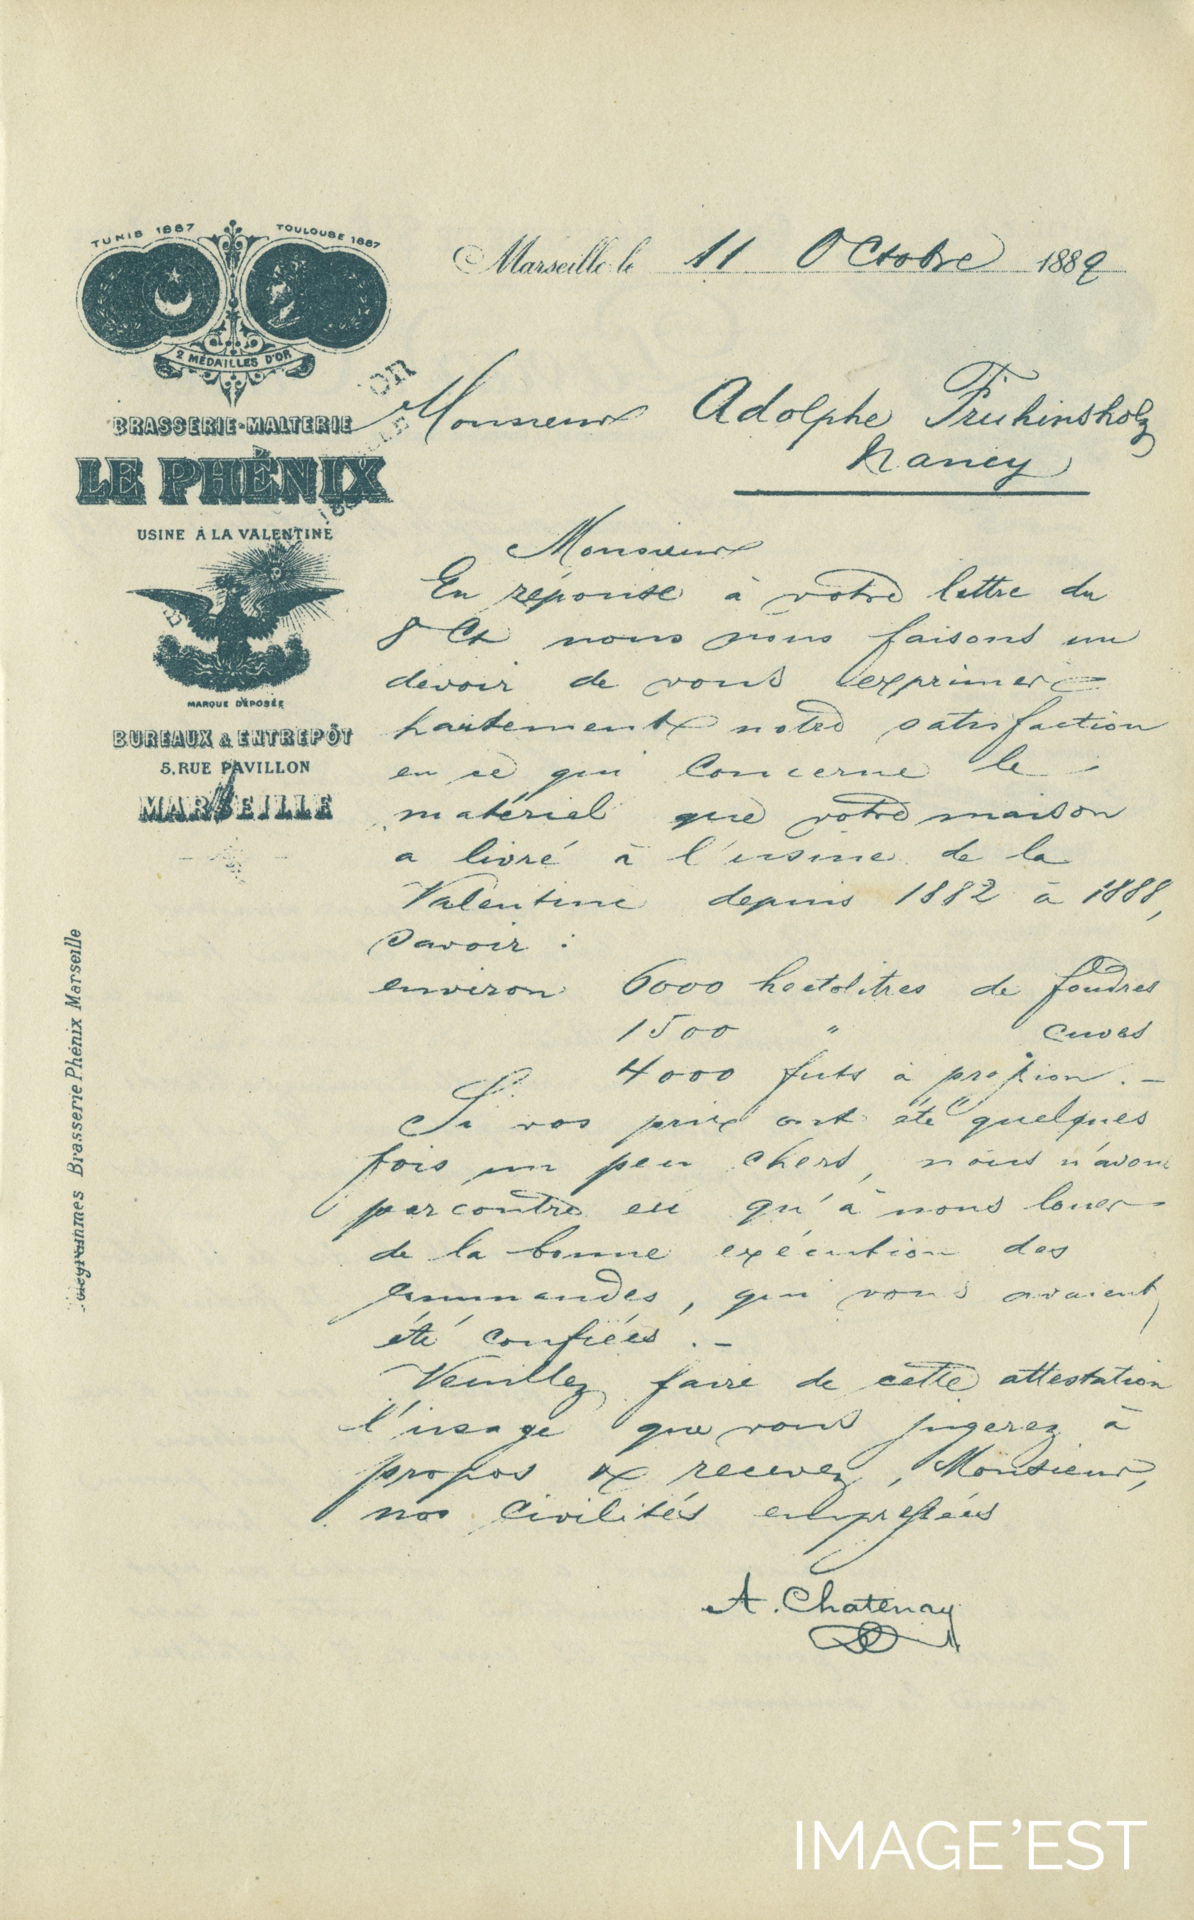 TUNIS 1887
TOULOUSE 1887
2 MÉDAILLES D'OR
BRASSERIE-MALTERIE
LE PHÉNIX
USINE À LA VALENTINE
MARQUE DÉPOSÉE
BUREAUX & ENTREPÔT
5, RUE PAVILLON
MARSEILLE
Télégrammes Brasserie Phénix Marseille
Marseille le 11 Octobre 1889
Monsieur Adolphe Fruhinsholz
Nancy
Monsieur
En réponse à votre lettre du
8 Ct nous nous faisons un
devoir de vous exprimer
hautement notre satisfaction
en ce qui concerne le
matériel que votre maison
a livré à l'usine de la
Valentine depuis 1882 à 1888,
savoir :
environ 6000 hectolitres de foudres
1500 " cuves
4000 futs à . –
Si vos prix ont été quelques
fois un peu chers, nous n'avons
par contre eu qu'à nous louer
de la bonne exécution des
commandes, qui vous avaient
été confiées. –
Veuillez faire de cette attestation
l'usage que vous jugerez à
propos et recevez, Monsieur,
nos civilités empressées
A. Chatenay
IMAGE'EST